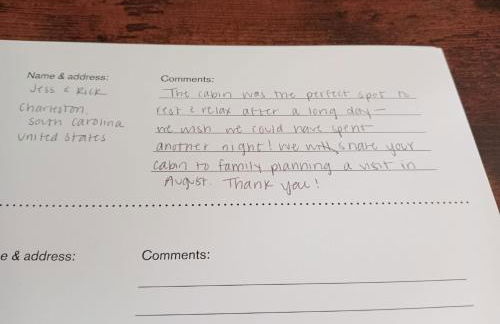 Name & address:
Jess & Rick
Charleston,
South Carolina
United States
Comments:
The cabin was the perfect spot to
rest & relax after a long day—
we wish we could have spent
another night! We will share your
cabin to family planning a visit in
August. Thank you!
e & address:
Comments: